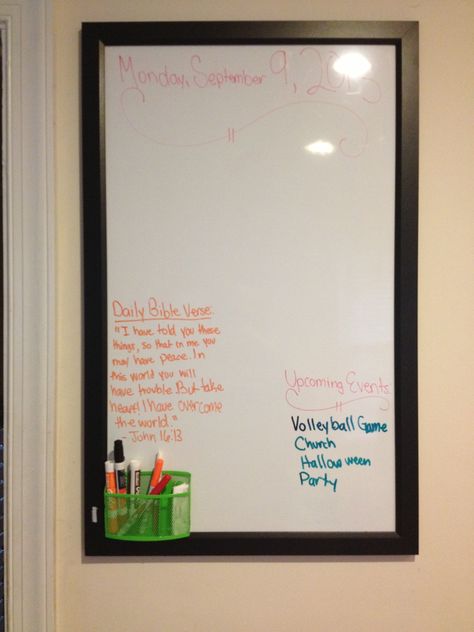 Monday, September 9, 2013
Daily Bible Verse:
"I have told you these
things, so that in me you
may have peace. In
this world you will
have trouble. But take
heart! I have overcome
the world."
- John 16:13
Upcoming Events
Volleyball Game
Church
Halloween
Party